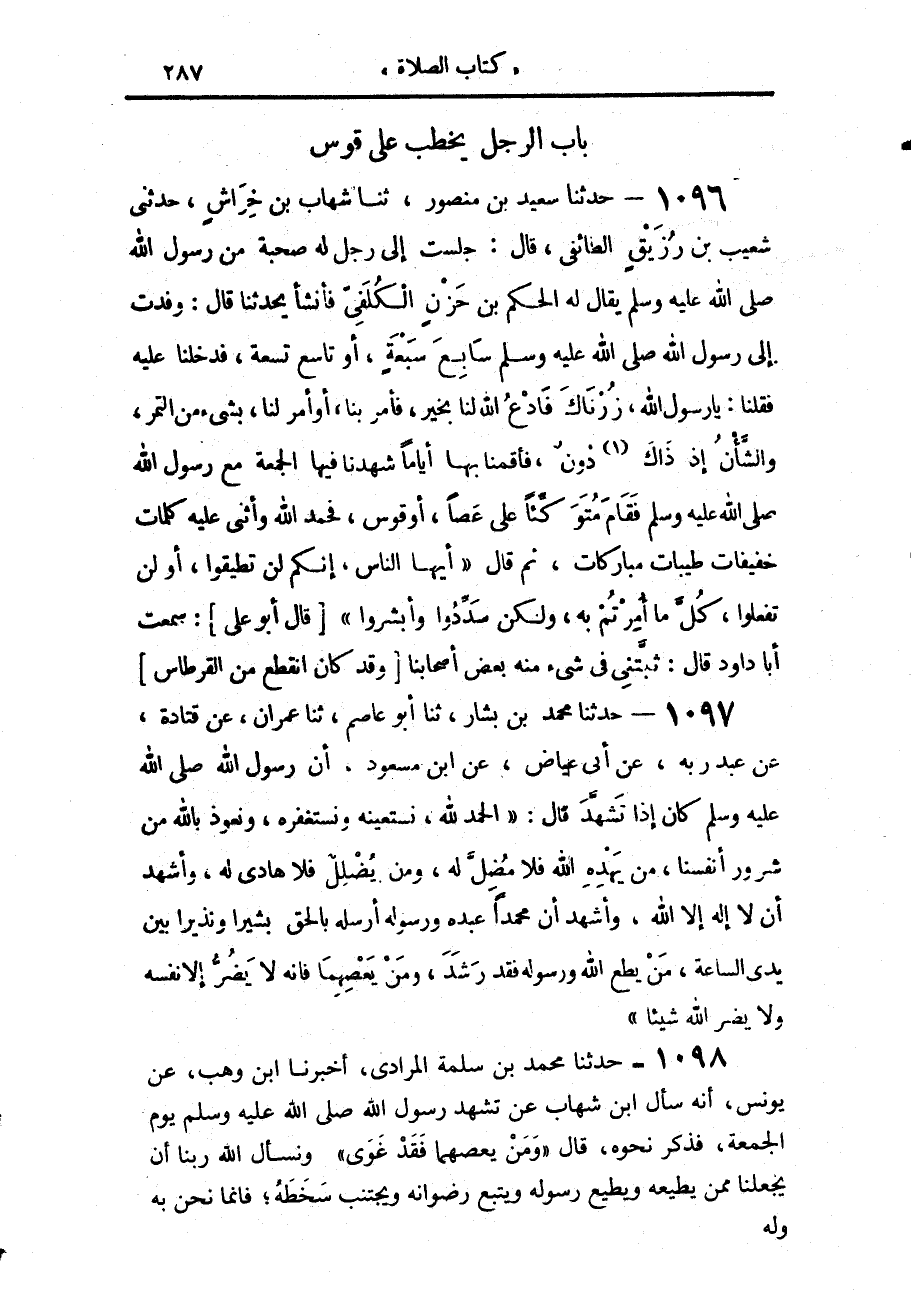 « كتاب الصلاة » ٢٨٧
باب الرجل يخطب على قوس
١٠٩٦ — حدثنا سعيد بن منصور ، ثنا شهاب بن خِرَاشٍ ، حدثنى
شعيب بن رُزَيْقٍ الطائفى ، قال : جلست إلى رجل له صحبة من رسول الله
صلى الله عليه وسلم يقال له الحكم بن حَزْنٍ الْكُلَفِىّ فأنشأ يحدثنا قال : وفدت
إلى رسول الله صلى الله عليه وسلم سَابِعَ سَبْعَةٍ ، أو تاسع تسعة ، فدخلنا عليه
فقلنا : يارسول الله ، زُرْنَاكَ فَادْعُ الله لنا بخير ، فأمر بنا ، أوأمر لنا ، بشىء من التمر ،
والشَّأْنُ إذ ذَاكَ (١) دُونٌ ، فأقمنا بها أياماً شهدنا فيها الجمعة مع رسول الله
صلى الله عليه وسلم فَقَامَ مُتَوَكِّئاً على عَصاً ، أو قوس ، فحمد الله وأثنى عليه كلمات
خفيفات طيبات مباركات ، ثم قال « أيها الناس ، إنكم لن تطيقوا ، أو لن
تفعلوا ، كُلَّ ما أُمِرْتُمْ به ، ولكن سَدِّدُوا وأبشروا » [ قال أبو على ] : سمعت
أبا داود قال : ثبَّتَنِى فى شىء منه بعض أصحابنا [ وقد كان انقطع من القرطاس ]
١٠٩٧ — حدثنا محمد بن بشار ، ثنا أبو عاصم ، ثنا عمران ، عن قتادة ،
عن عبد ربه ، عن أبى عياض ، عن ابن مسعود . أن رسول الله صلى الله
عليه وسلم كان إذا تَشَهَّدَ قال : « الحمد لله ، نستعينه ونستغفره ، ونعوذ بالله من
شرور أنفسنا ، من يَهْدِهِ الله فلا مُضِلَّ له ، ومن يُضْلِلْ فلا هادى له ، وأشهد
أن لا إله إلا الله ، وأشهد أن محمداً عبده ورسوله أرسله بالحق بشيرا ونذيرا بين
يدى الساعة ، مَنْ يطع الله ورسوله فقد رَشَدَ ، ومَنْ يَعْصِهِمَا فانه لا يَضُرُّ إلا نفسه
ولا يضر الله شيئا »
١٠٩٨ - حدثنا محمد بن سلمة المرادى، أخبرنا ابن وهب، عن
يونس، أنه سأل ابن شهاب عن تشهد رسول الله صلى الله عليه وسلم يوم
الجمعة، فذكر نحوه، قال «وَمَنْ يعصهما فَقَدْ غَوَى» ونسأل الله ربنا أن
يجعلنا ممن يطيعه ويطيع رسوله ويتبع رضوانه ويجتنب سَخَطَهُ؛ فانما نحن به
وله